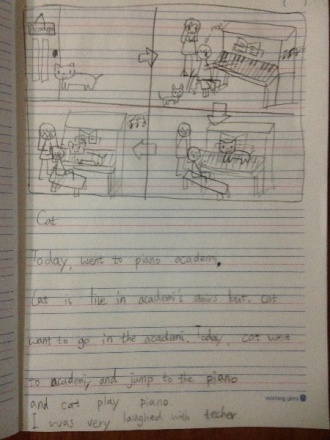 Cat
Today, went to piano academi.
Cat is live in academi's doors but. cat
want to go in the academi. Today, cat went
to academi, and jump to the piano
and cat play piano.
I was very laughed with techer.